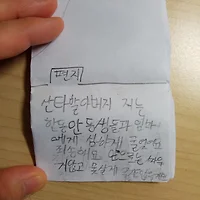 편지
산타할아버지 저는
한동안 동생들과 엄마
에게 심하게 굴었어요
죄송해요 앞으로는 싸우
지않고 놀게